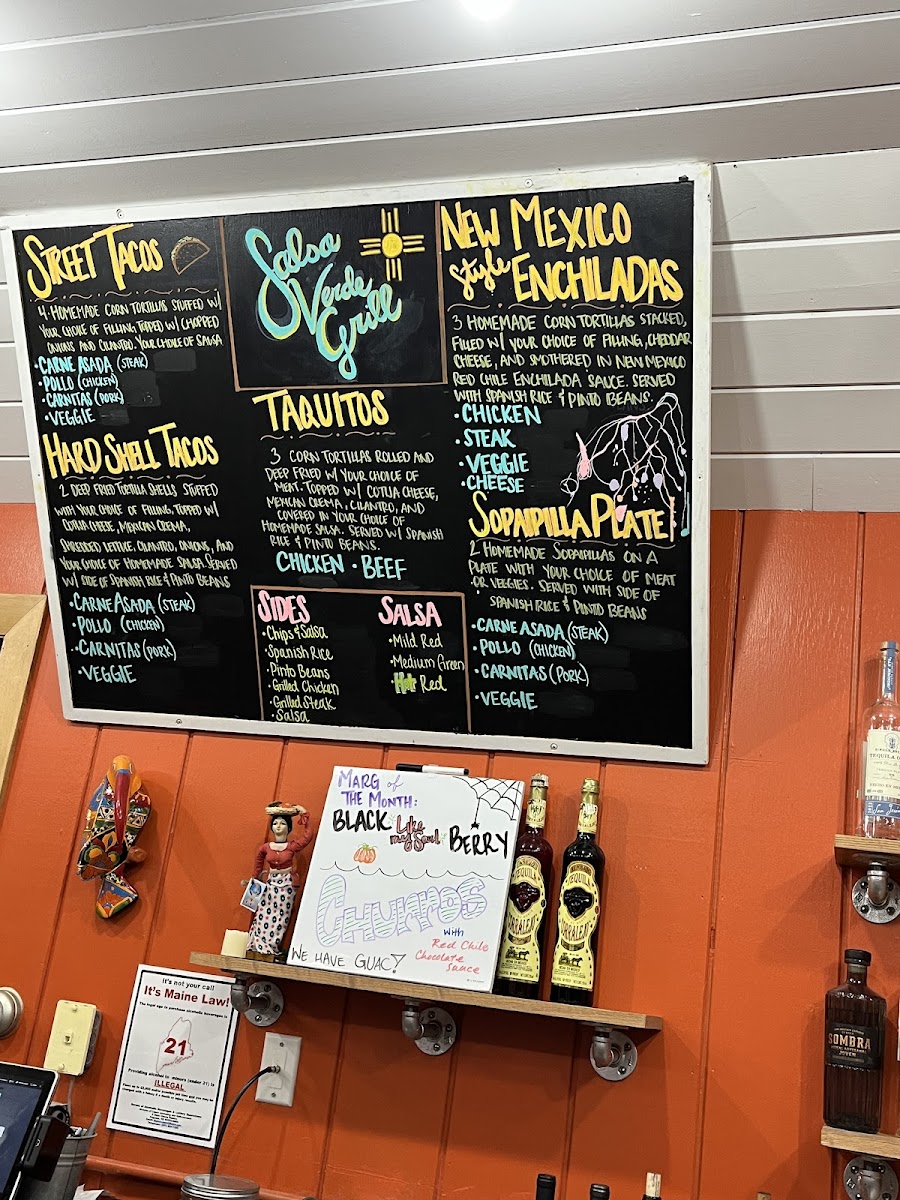 STREET TACOS
4 HOMEMADE CORN TORTILLAS STUFFED W/
YOUR CHOICE OF FILLING, TOPPED W/ CHOPPED
ONIONS AND CILANTRO. YOUR CHOICE OF SALSA
• CARNE ASADA (STEAK)
• POLLO (CHICKEN)
• CARNITAS (PORK)
• VEGGIE
HARD SHELL TACOS
2 DEEP FRIED TORTILLA SHELLS STUFFED
WITH YOUR CHOICE OF FILLING, TOPPED W/
COTIJA CHEESE, MEXICAN CREMA,
SHREDDED LETTUCE, CILANTRO, ONIONS, AND
YOUR CHOICE OF HOMEMADE SALSA. SERVED
W/ SIDE OF SPANISH RICE & PINTO BEANS
• CARNE ASADA (STEAK)
• POLLO (CHICKEN)
• CARNITAS (PORK)
• VEGGIE
Salsa
Verde
Grill
TAQUITOS
3 CORN TORTILLAS ROLLED AND
DEEP FRIED W/ YOUR CHOICE OF
MEAT. TOPPED W/ COTIJA CHEESE,
MEXICAN CREMA, CILANTRO, AND
COVERED IN YOUR CHOICE OF
HOMEMADE SALSA. SERVED W/ SPANISH
RICE & PINTO BEANS.
CHICKEN • BEEF
SIDES
• Chips & Salsa
• Spanish Rice
• Pinto Beans
• Grilled Chicken
• Grilled Steak
• Salsa
SALSA
• Mild Red
• Medium Green
• Hot Red
NEW MEXICO
Style ENCHILADAS
3 HOMEMADE CORN TORTILLAS STACKED,
FILLED W/ YOUR CHOICE OF FILLING, CHEDDAR
CHEESE, AND SMOTHERED IN NEW MEXICO
RED CHILE ENCHILADA SAUCE. SERVED
WITH SPANISH RICE & PINTO BEANS.
• CHICKEN
• STEAK
• VEGGIE
• CHEESE
SOPAIPILLA PLATE
2 HOMEMADE SOPAIPILLAS ON A
PLATE WITH YOUR CHOICE OF MEAT
OR VEGGIES. SERVED WITH SIDE OF
SPANISH RICE & PINTO BEANS
• CARNE ASADA (STEAK)
• POLLO (CHICKEN)
• CARNITAS (PORK)
• VEGGIE
MARG of
THE MONTH:
BLACK Like my Soul BERRY
CHURROS
with
Red Chile
Chocolate
Sauce
WE HAVE GUAC!
It's not your call
It's Maine Law!
The legal age to purchase alcoholic beverages is
21
Providing alcohol to minors (under 21) is
ILLEGAL
TEQUILA
TEQUILA
TEQUILA
SOMBRA
JOVEN